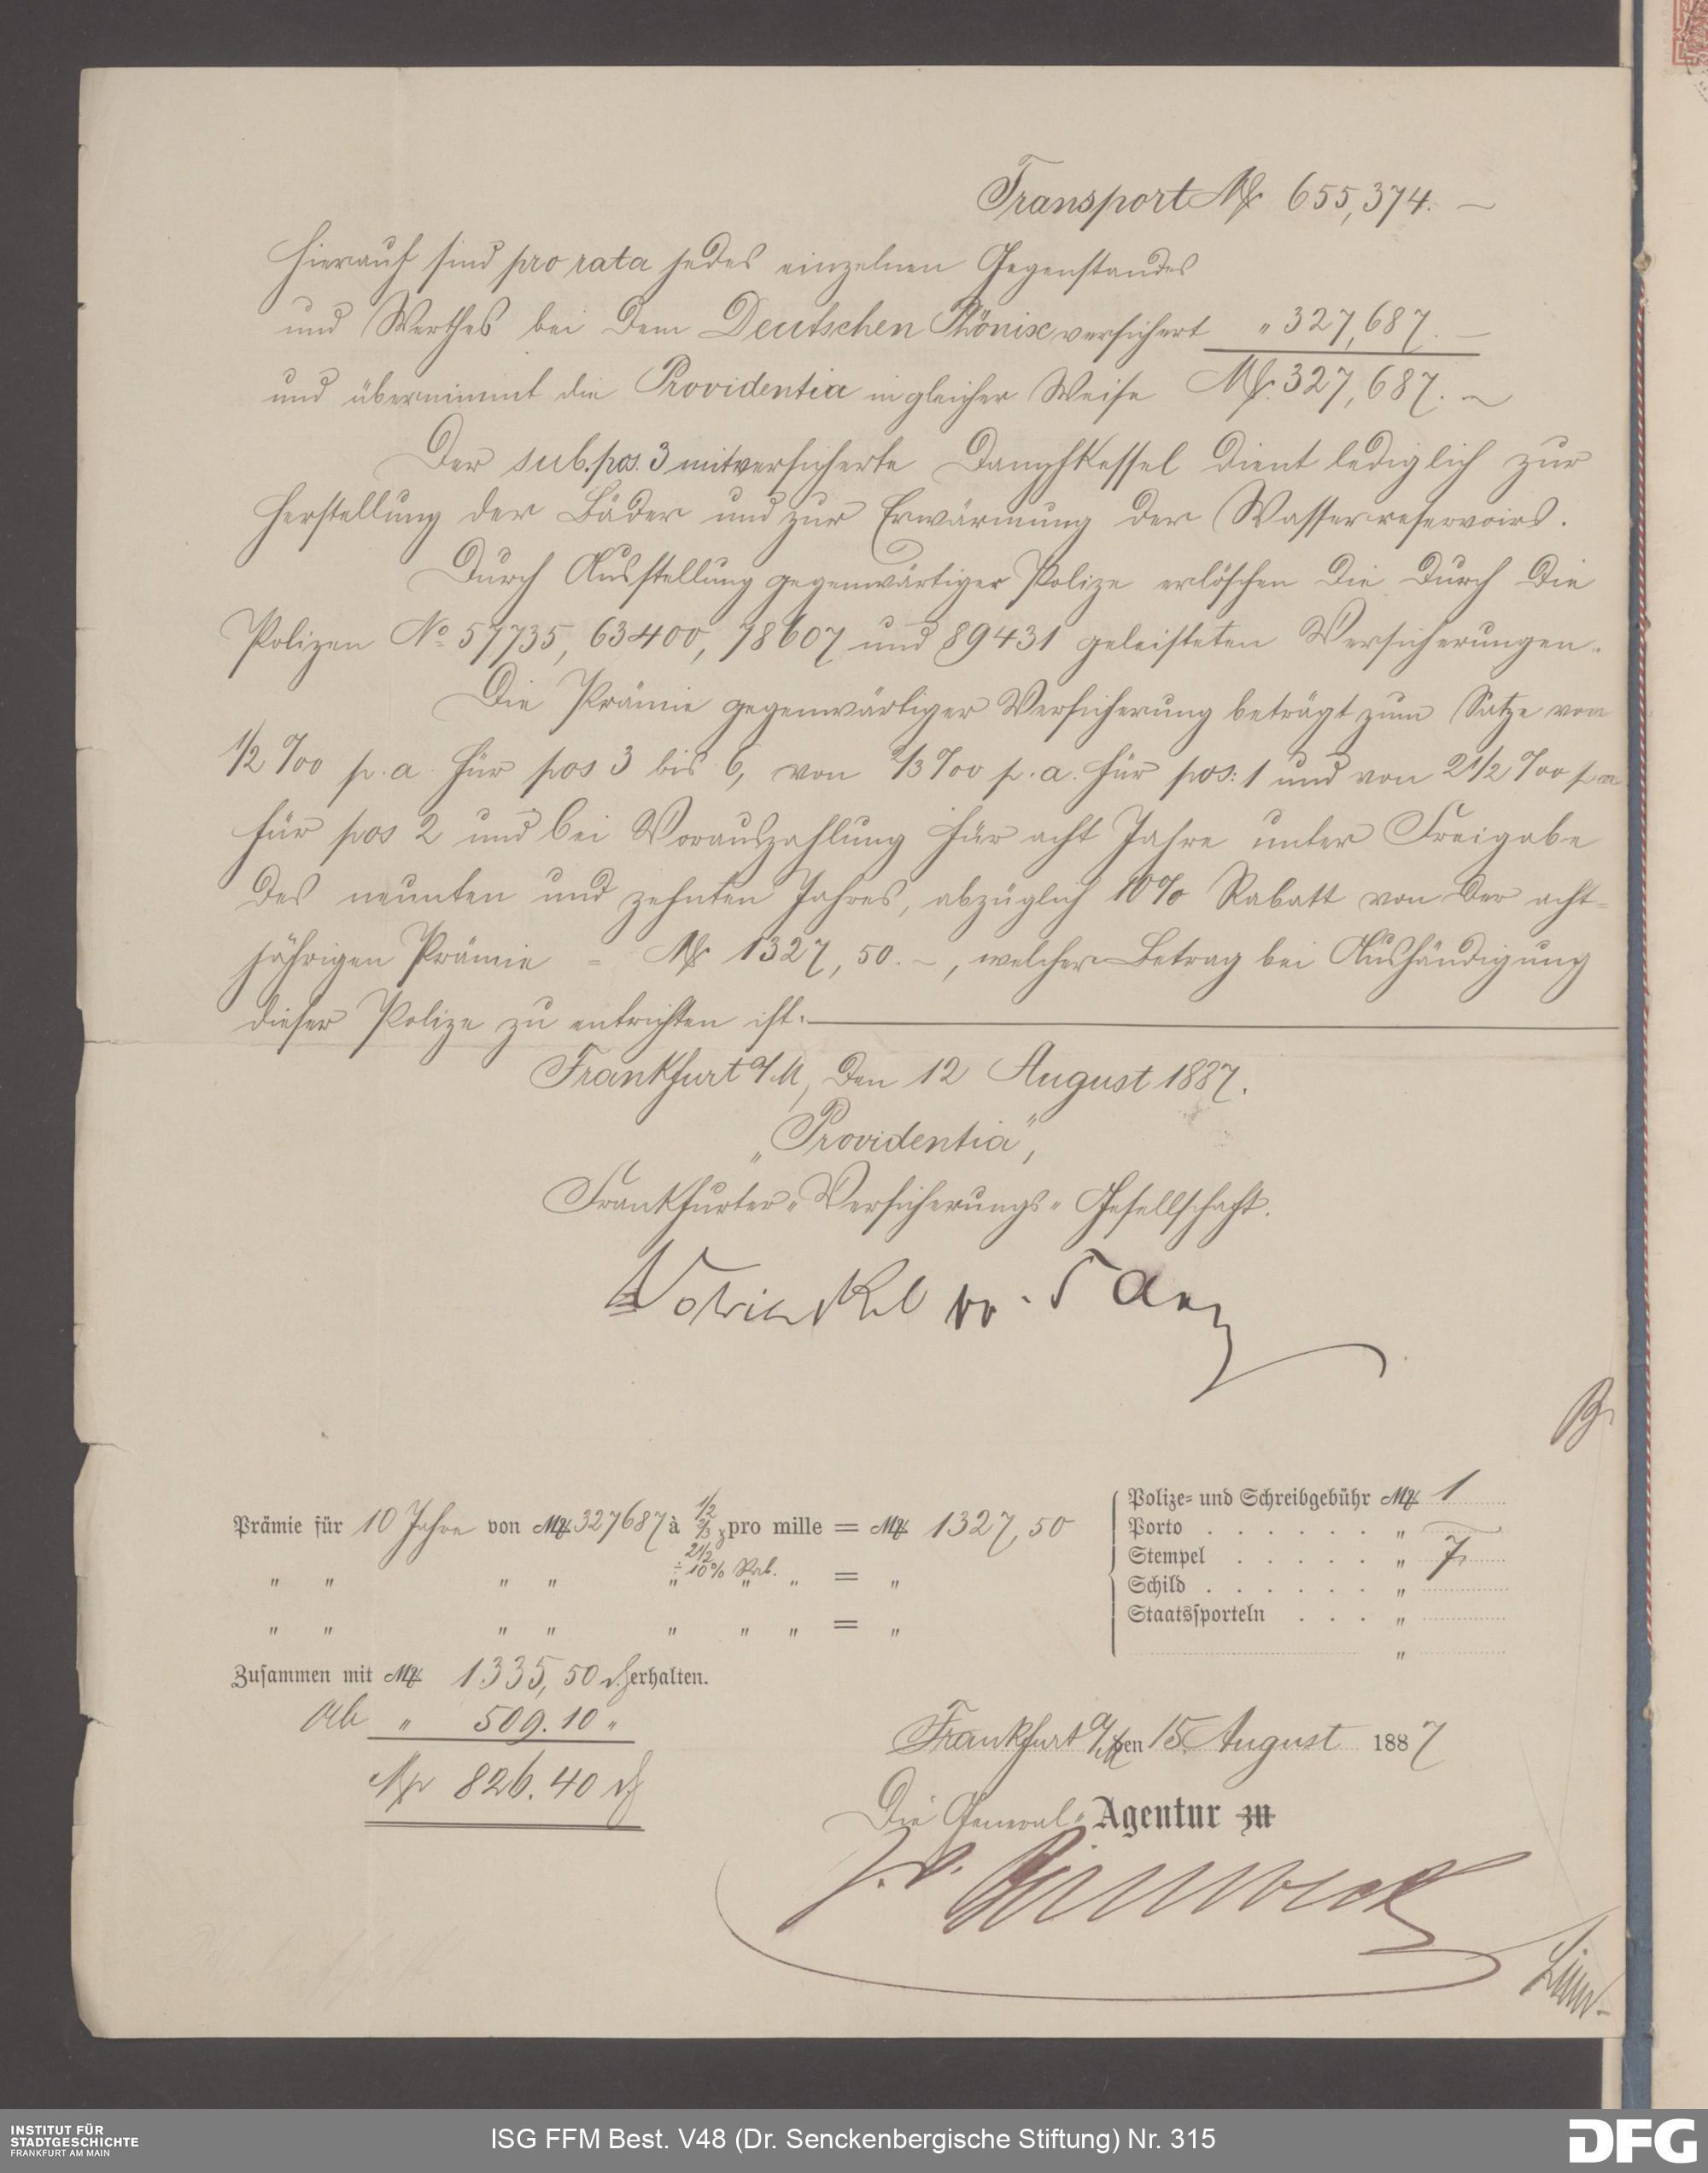 Transport Mk 655,374. —
Hierauf sind pro rata jedes einzelnen Gegenstandes
und Werthes bei dem Deutschen Phönix versichert " 327,687. —
und übernimmt die Providentia in gleicher Weise Mk. 327,687. —
Der sub. pos. 3 mitversicherte Dampfkessel dient lediglich zur
Herstellung der Bäder und zur Erwärmung der Wasserreservoirs.
Durch Ausstellung gegenwärtiger Polize erlöschen die durch die
Polizen No 57735, 63400, 78607 und 89431 geleisteten Versicherungen.
Die Prämie gegenwärtiger Versicherung beträgt zum Satze von
1/2 ‰ p. a. für pos 3 bis 6, von 2/3 ‰ p. a. für pos: 1 und von 2 1/2 ‰ p a
für pos 2 und bei Vorauszahlung für acht Jahre unter Freigabe
des neunten und zehnten Jahres, abzüglich 10% Rabatt von der acht-
jährigen Prämie = Mk 1327,50. –, welcher Betrag bei Aushändigung
dieser Polize zu entrichten ist.
Frankfurt a/M, den 12 August 1887.
„Providentia",
Frankfurter-Versicherungs-Gesellschaft.
Prämie für 10 Jahre von Mk 327687 à 1/2 2/3 2 1/2 pro mille = Mk 1327,50
÷ 10% Rab.
" " " " " " " = "
" " " " " " " = "
Polize- und Schreibgebühr Mk 1
Porto . . . . . . " —
Stempel . . . . . " 7.
Schild . . . . . . "
Staatssporteln . . . "
"
Zusammen mit Mk 1335,50 ₰ erhalten.
ab " 509.10 "
Mk 826.40 ₰
Frankfurt a/M den 15. August 1887
Die General-Agentur zu
ISG FFM Best. V48 (Dr. Senckenbergische Stiftung) Nr. 315
INSTITUT FÜR
STADTGESCHICHTE
FRANKFURT AM MAIN
DFG